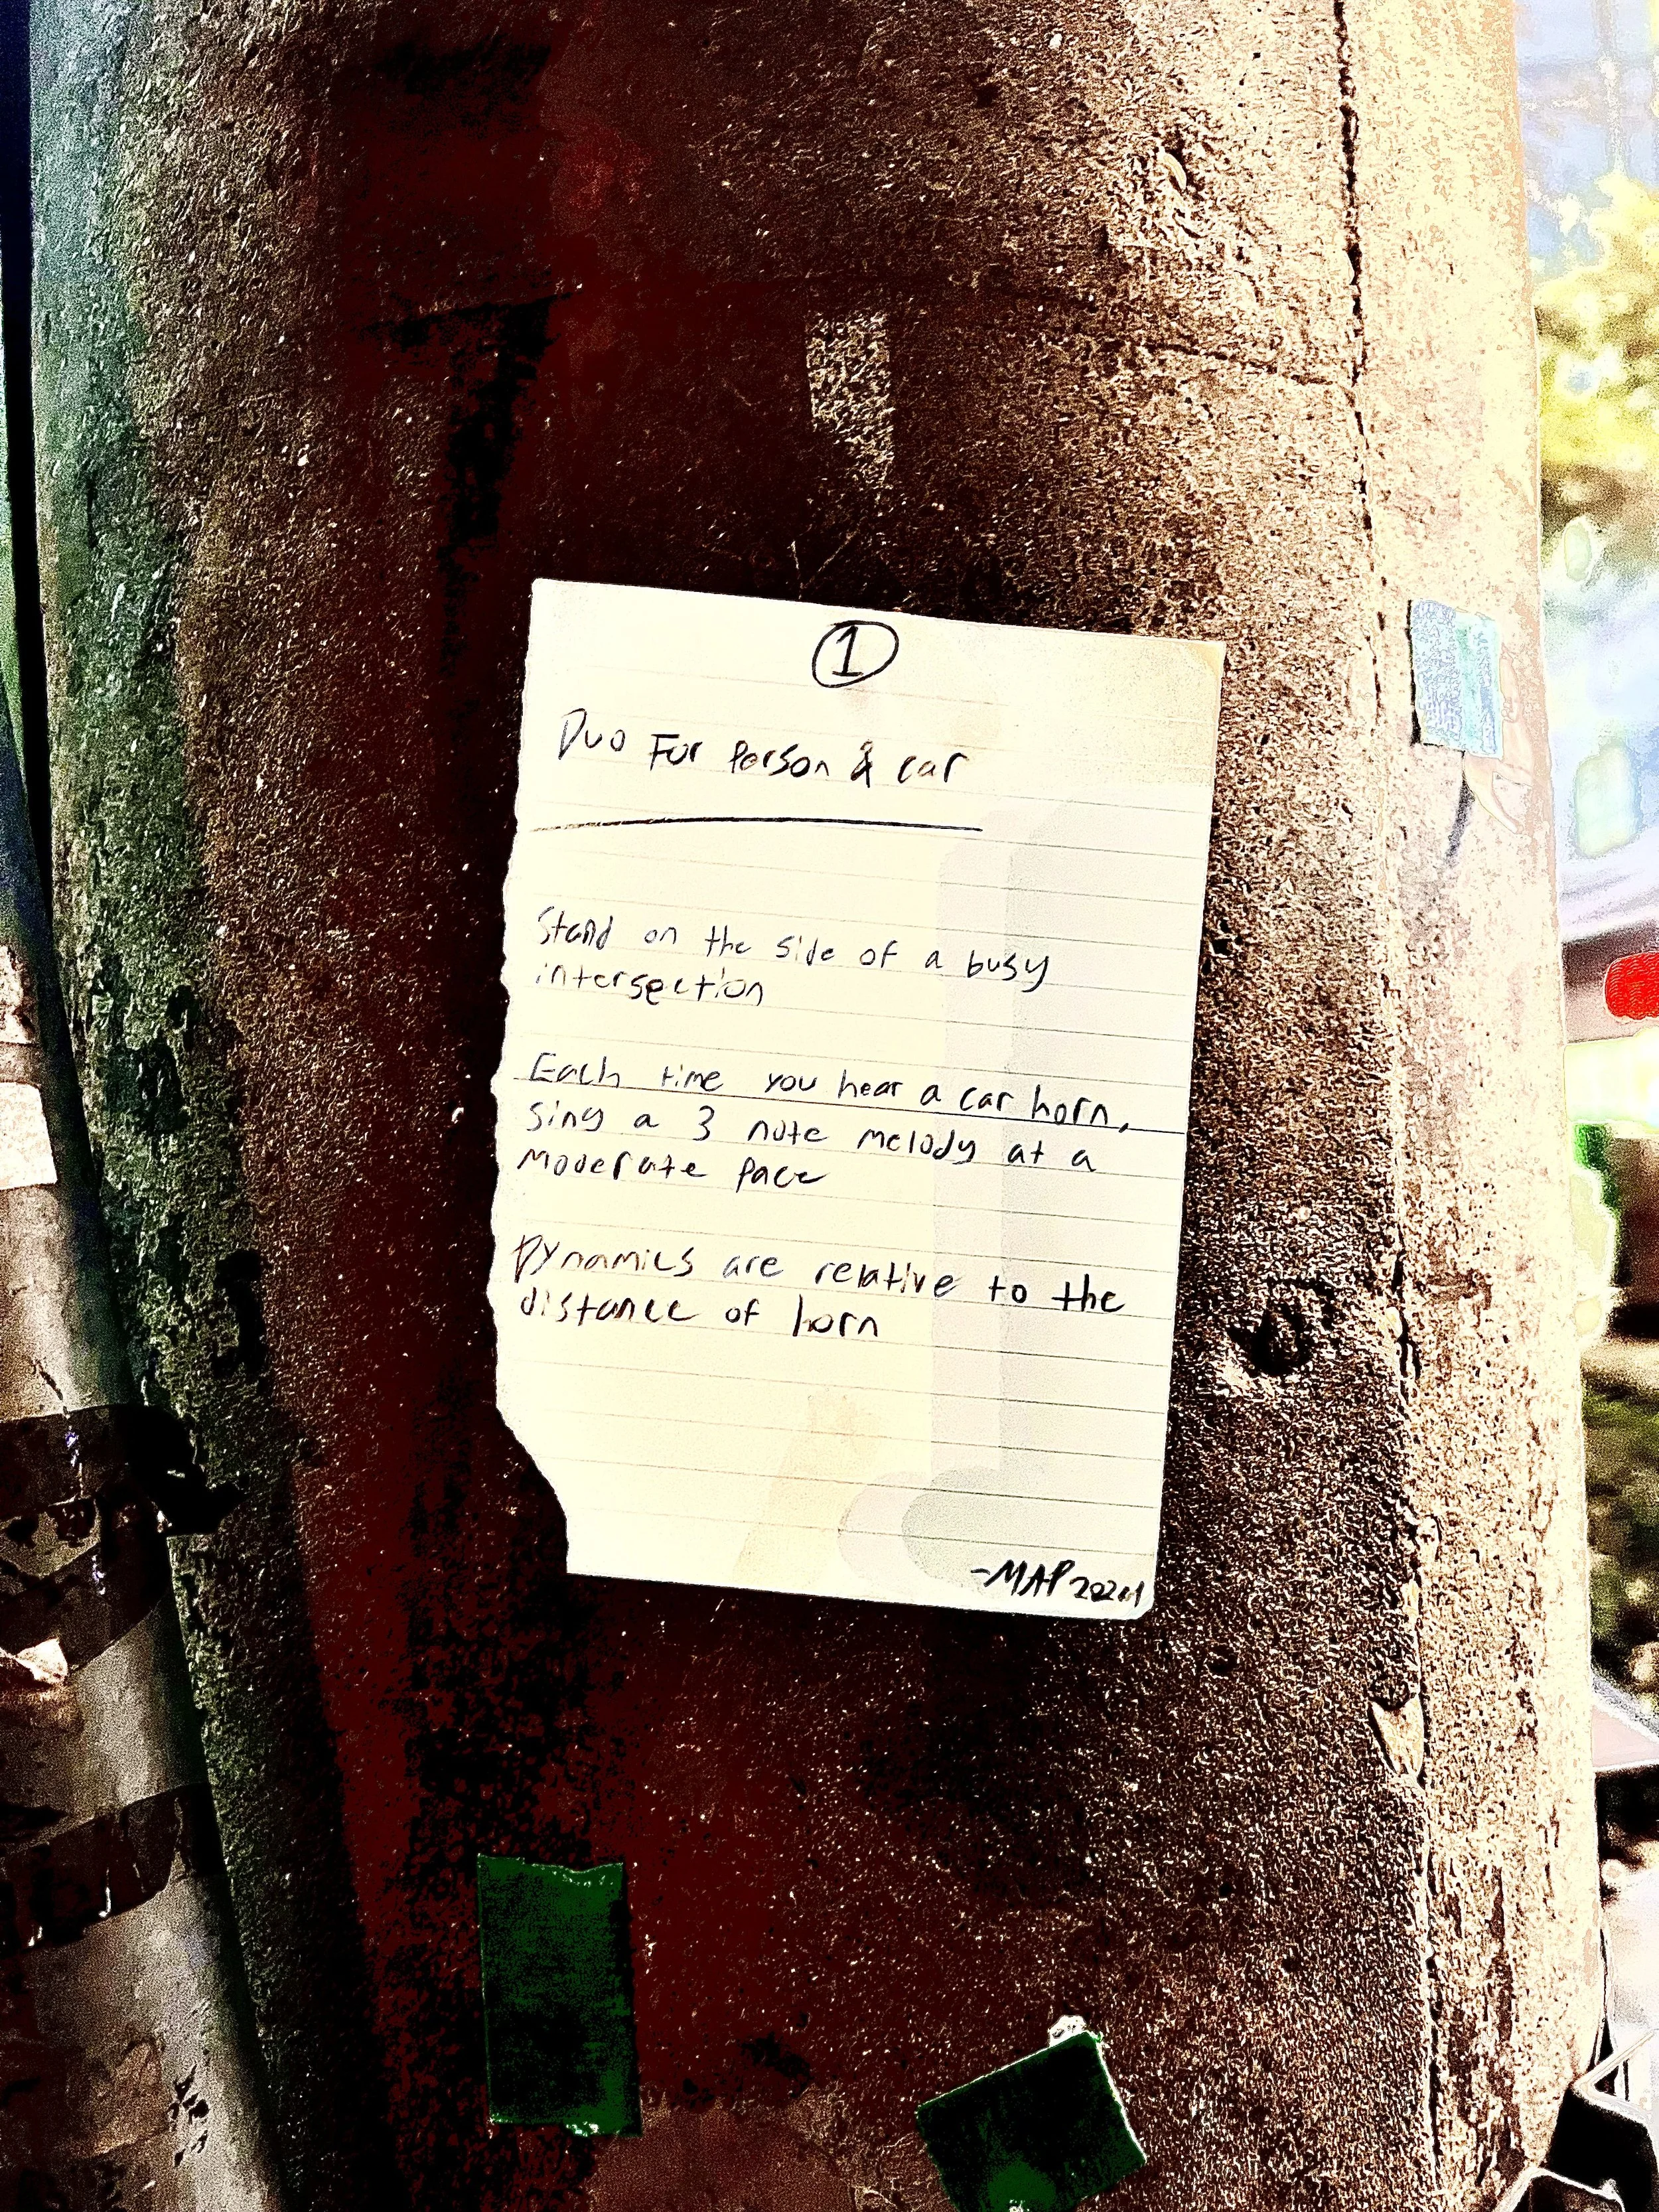 1
Duo For Person & car
Stand on the side of a busy
intersection
Each time you hear a car horn,
sing a 3 note melody at a
moderate pace
Dynamics are relative to the
distance of horn
-MAP 2024